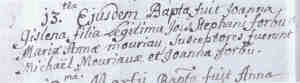 13.ta Ejusdem Bapta fuit Joanna
Gislena filia Legitima Jois Stephani forbu
Mariæ Annæ mouriau, Susceptores fuerunt
Michaël Mouriauæ et Joanna forbu.
ma. Martii Bapta fuit Anna